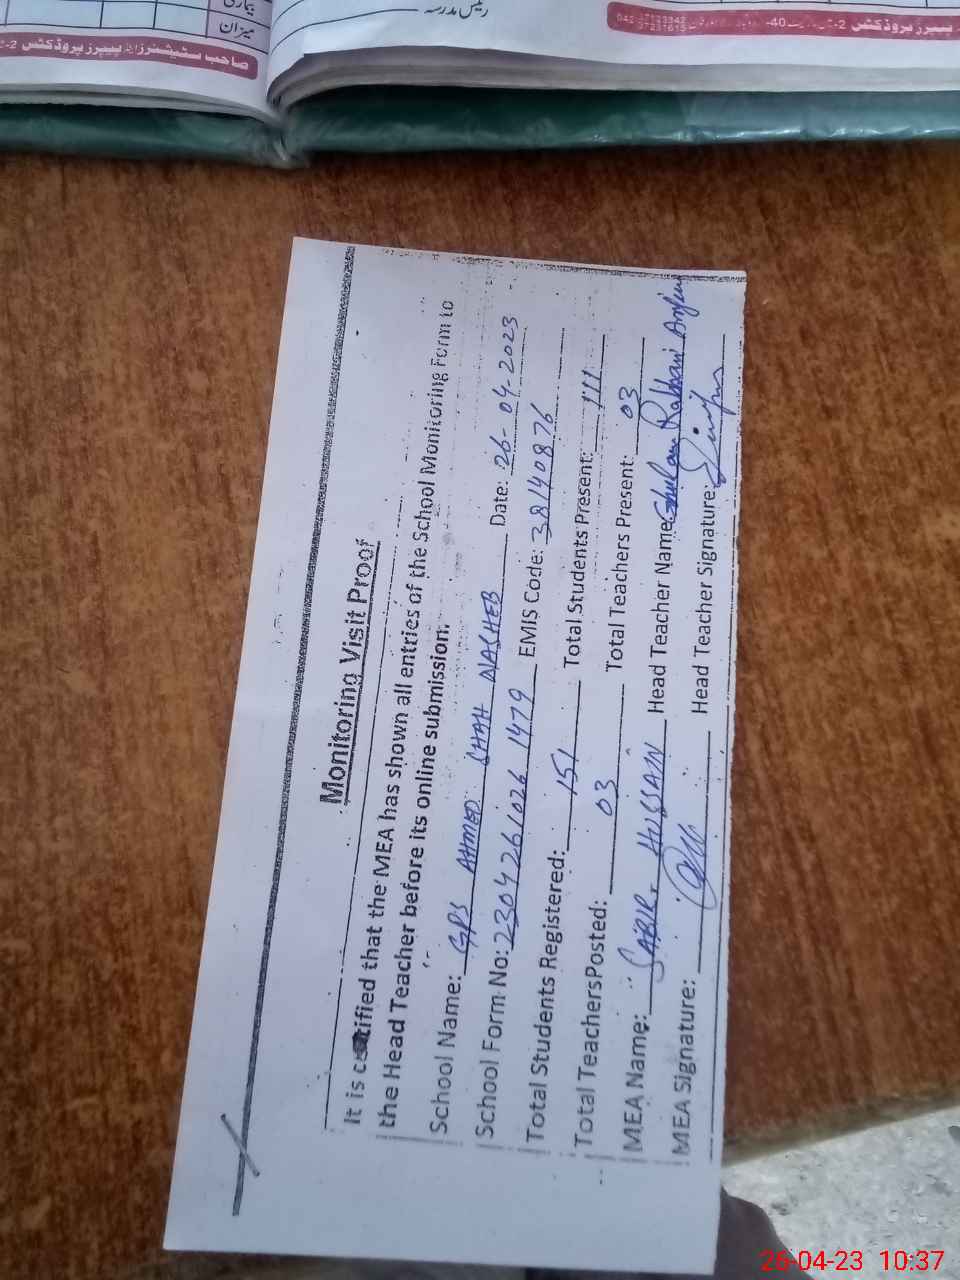 بیماری
میزان
رئیس مدرسہ
صاحب سٹیشنرز اینڈ پیپرز پروڈکٹس 2-
پیپرز پروڈکٹس 2-
Monitoring Visit Proof
It is certified that the MEA has shown all entries of the School Monitoring Form to
the Head Teacher before its online submission.
School Name: GPS AHMED SHAH NASHEB Date: 26-04-2023
School Form No: 2304261026 1479 EMIS Code: 38140876
Total Students Registered: 151 Total Students Present: 111
Total Teachers Posted: 03 Total Teachers Present: 03
MEA Name: SABIR HUSSAIN Head Teacher Name: Ghulam Rabbani Anjum
MEA Signature: Head Teacher Signature:
26-04-23 10:37